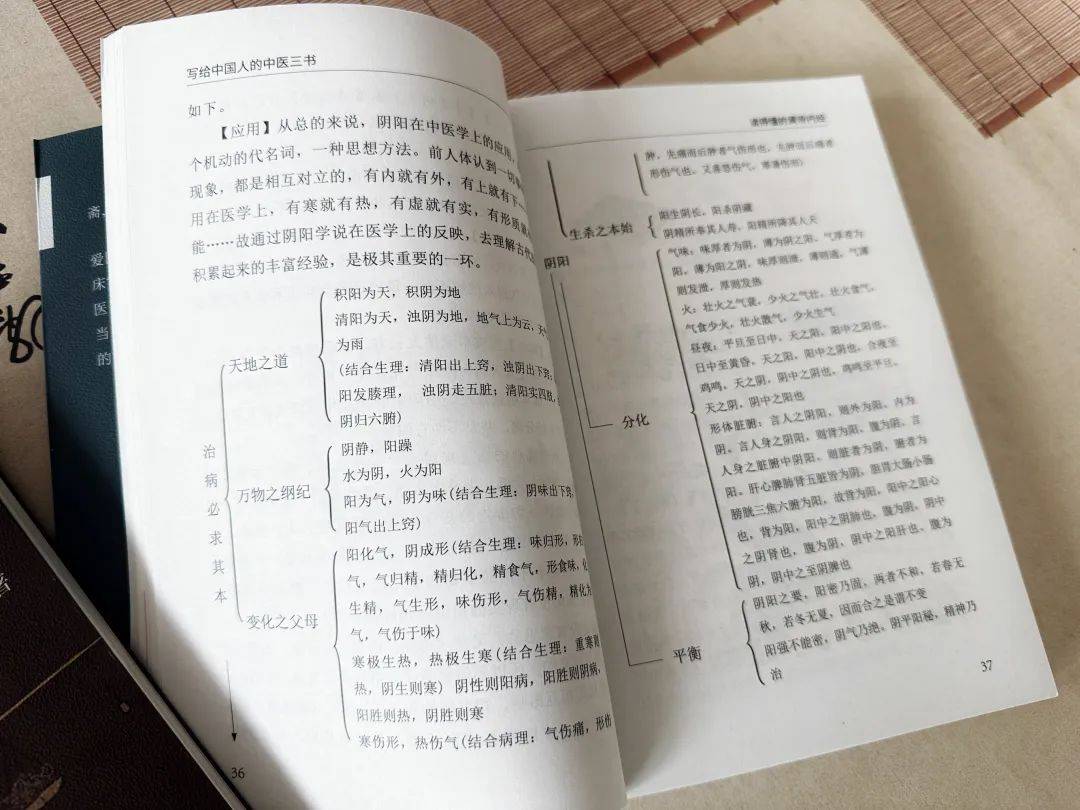 写给中国人的中医三书
如下。
【应用】从总的来说，阴阳在中医学上的应用，
个机动的代名词，一种思想方法。前人体认到一切事
现象，都是相互对立的，有内就有外，有上就有下
用在医学上，有寒就有热，有虚就有实，有形质就
能……故通过阴阳学说在医学上的反映，去理解古代
积累起来的丰富经验，是极其重要的一环。
治病必求其本
天地之道
积阳为天，积阴为地
清阳为天，浊阴为地，地气上为云，天
为雨
(结合生理：清阳出上窍，浊阴出下窍；
阳发腠理， 浊阴走五脏；清阳实四肢，
阴归六腑)
万物之纲纪
阴静，阳躁
水为阴，火为阳
阳为气，阴为味(结合生理：阴味出下窍，
阳气出上窍)
变化之父母
阳化气，阴成形(结合生理：味归形，形
气，气归精，精归化，精食气，形食味，化
生精，气生形，味伤形，气伤精，精化为
气，气伤于味)
寒极生热，热极生寒(结合生理：重寒则
热，阴生则寒) 阴性则阳病，阳胜则阴病，
阳胜则热，阴胜则寒
寒伤形，热伤气(结合病理：气伤痛，形伤
36
读得懂的黄帝内经
肿，先痛而后肿者气伤形也，先肿而后痛者
形伤气也。又喜怒伤气，寒暑伤形)
阴阳
生杀之本始
阳生阴长，阳杀阴藏
阴精所奉其人寿，阳精所降其人夭
分化
气味：味厚者为阴，薄为阴之阳，气厚者为
阳，薄为阳之阴，味厚则泄，薄则通，气薄
则发泄，厚则发热
火：壮火之气衰，少火之气壮，壮火食气，
气食少火，壮火散气，少火生气
昼夜：平旦至日中，天之阳，阳中之阳也，
日中至黄昏，天之阳，阳中之阴也，合夜至
鸡鸣，天之阴，阴中之阴也，鸡鸣至平旦，
天之阴，阴中之阳也
形体脏腑：言人之阴阳，则外为阳，内为
阴。言人身之阴阳，则背为阳，腹为阴。言
人身之脏腑中阴阳，则脏者为阴，腑者为
阳。肝心脾肺肾五脏皆为阴，胆胃大肠小肠
膀胱三焦六腑为阳，故背为阳，阳中之阳心
也，背为阳，阳中之阴肺也，腹为阴，阴中
之阴肾也，腹为阴，阴中之阳肝也，腹为
阴，阴中之至阴脾也
平衡
阴阳之要，阳密乃固，两者不和，若春无
秋，若冬无夏，因而合之是谓不变
阳强不能密，阴气乃绝，阴平阳秘，精神乃
治
37
斋，
爱
床
医
当
的